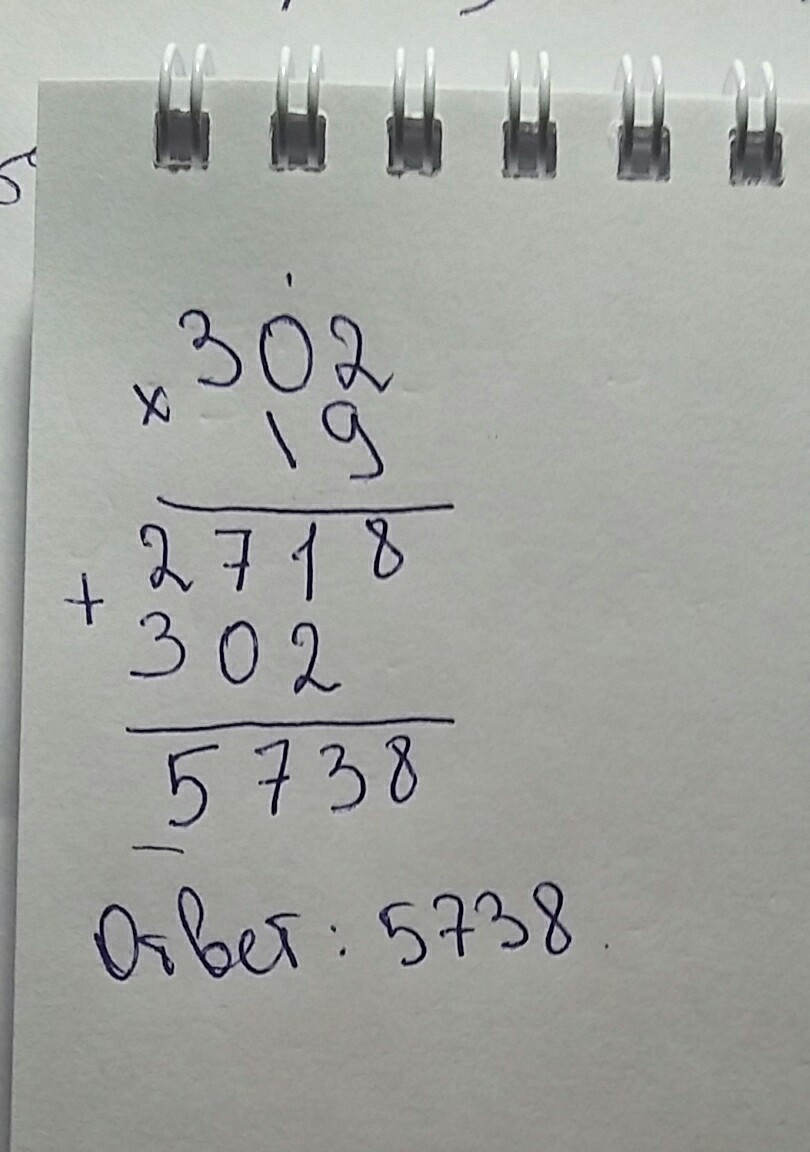 302
× 19
2718
+
302
5738
Ответ: 5738.